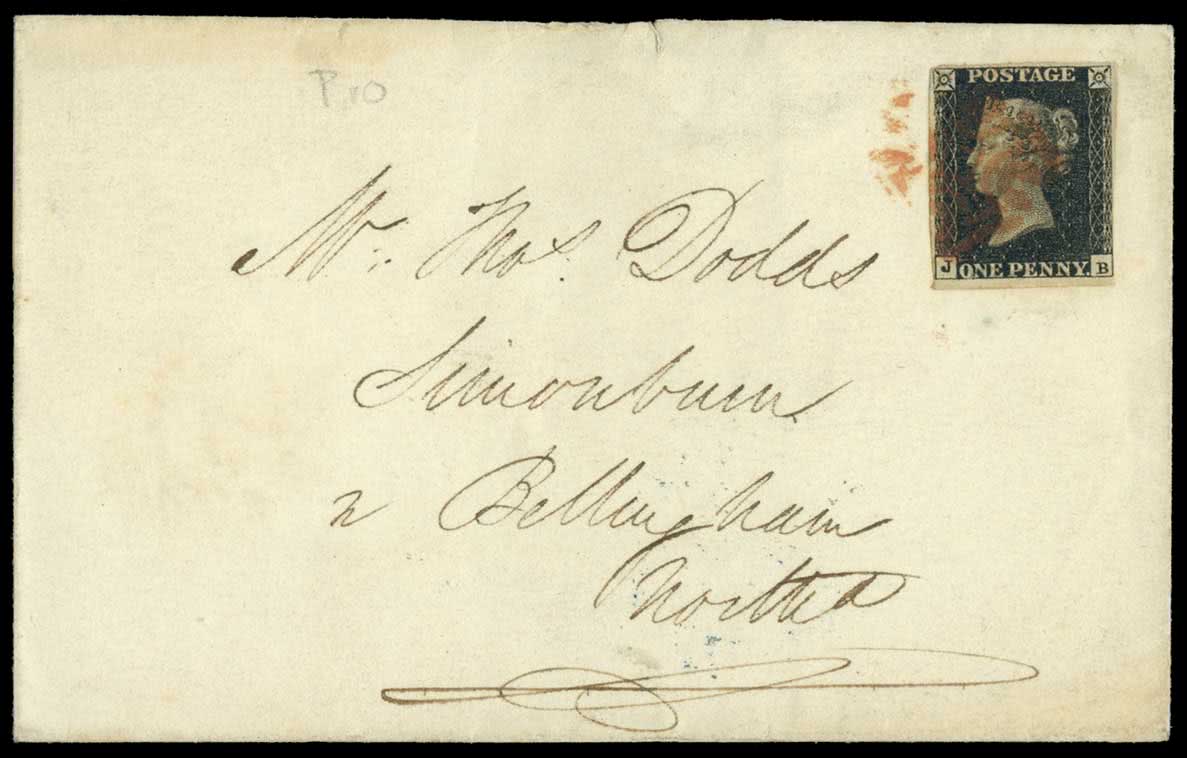 P.10
POSTAGE
J ONE PENNY. B
Mr. Thos. Dodds
Simonburn
n Bellingham
Northd